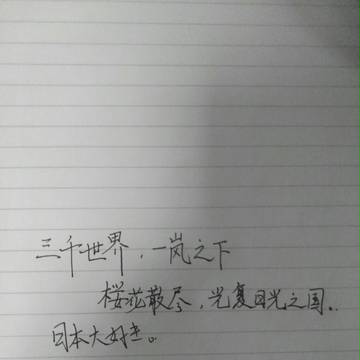 三千世界，一岚之下
桜花散尽，光复日光之国..
日本大好き。